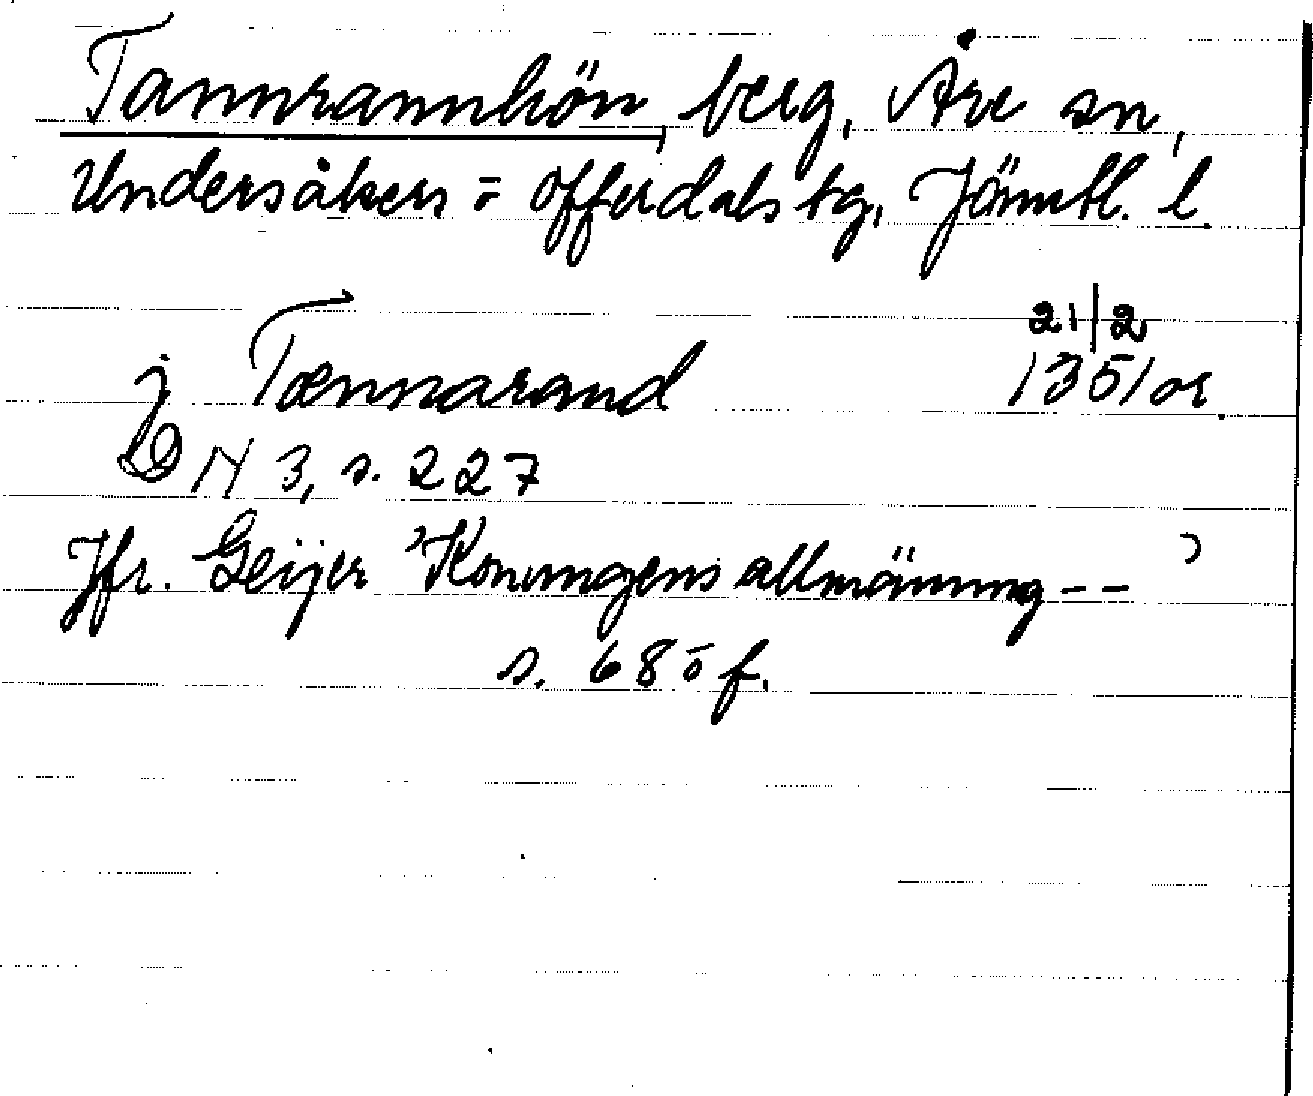 Tannrannhön, berg, Åre sn,
Undersåkers = Offerdals tg, Jämtl. l.
21/2
j Tænnarand 1351 or.
DN 3, s. 227
Jfr. Geijer 'Konungens allmänning -- '
s. 685 f.